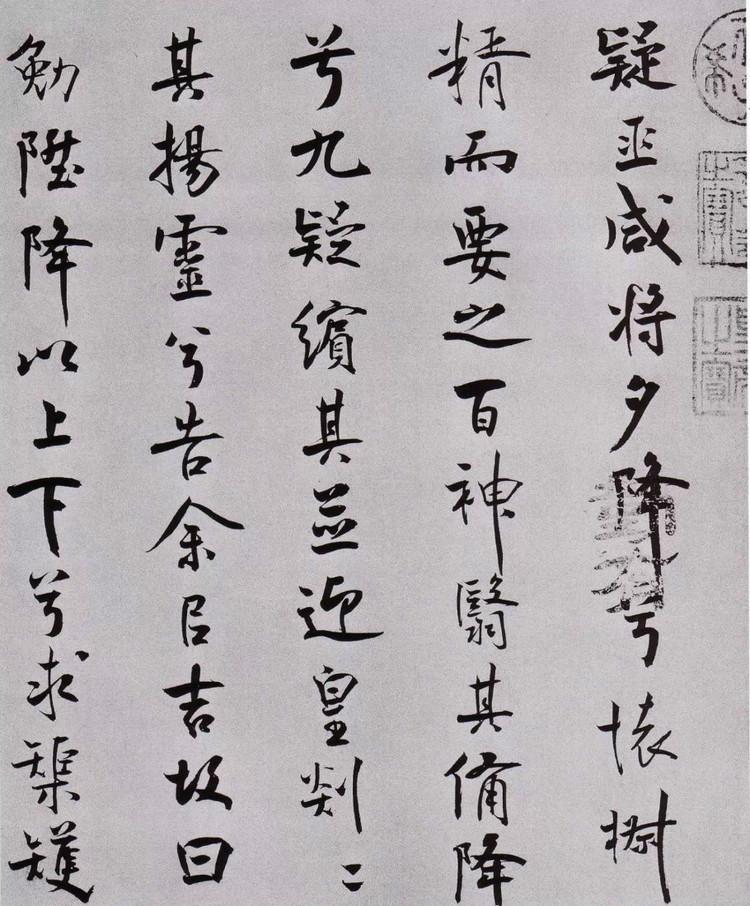 疑巫咸将夕降兮懐椒
精而要之百神翳其備降
兮九疑繽其並迎皇剡〻
其揚靈兮告余㠯吉故曰
勉陞降以上下兮求榘矱